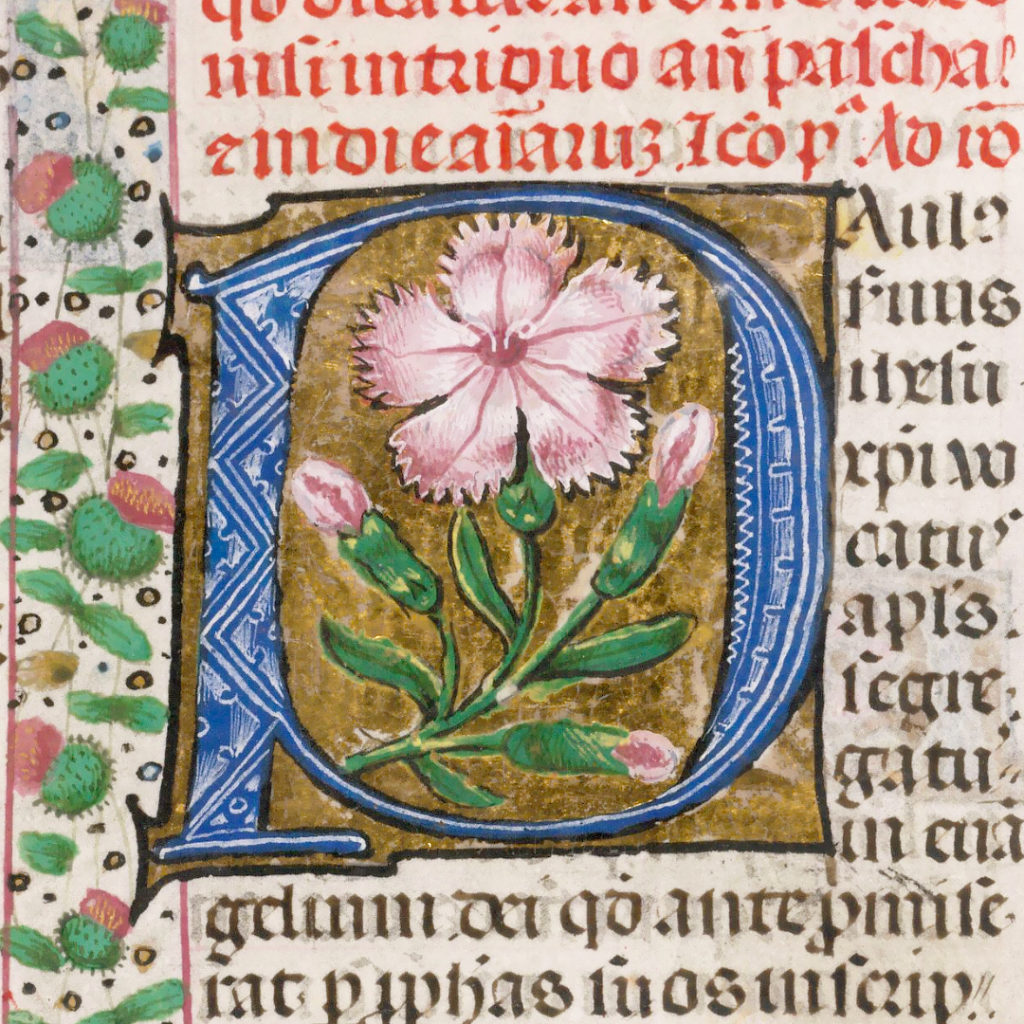 nisi in triduo an̄ pascha
⁊ in die aīaruꝫ Ad ro̅
PAulꝰ
seruus
ihesu
xp̄i vo
catus
apl's
segre
gatus
in euā
gelium dei qd̄ ante ꝓmise
rat ꝑ ꝓph̄as suos in scrip